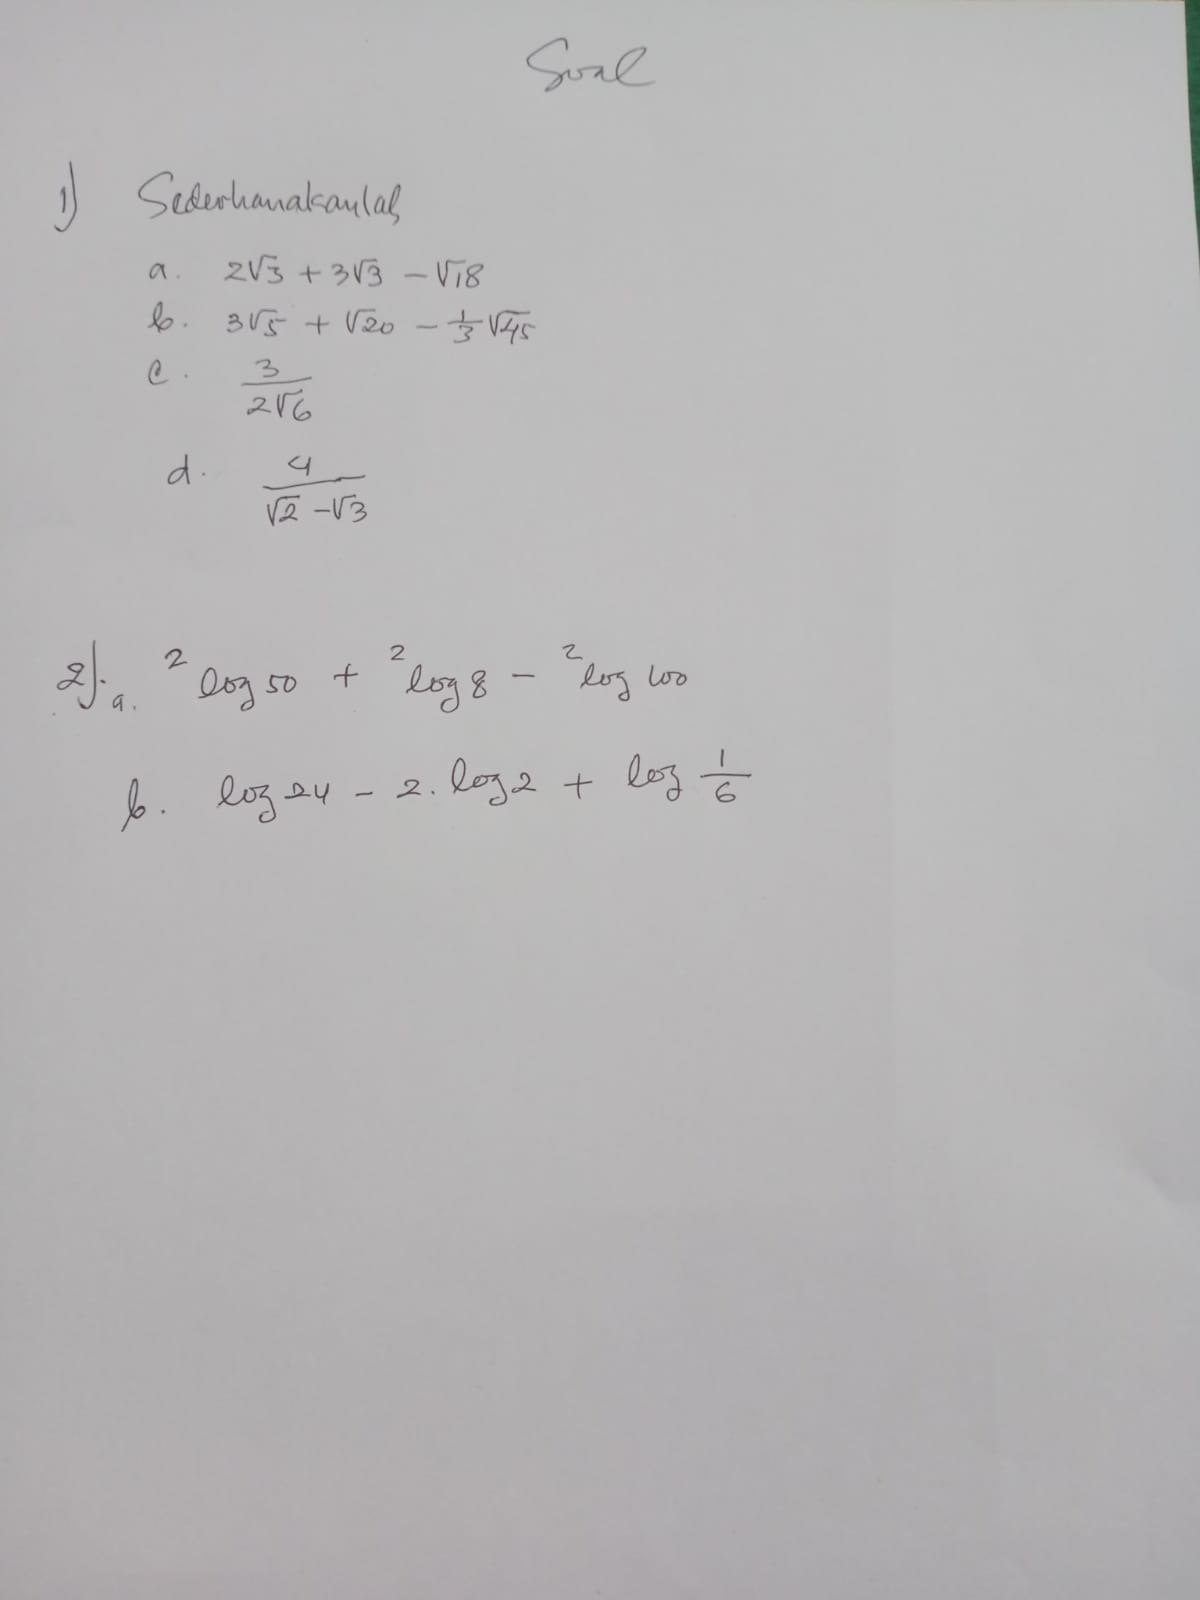 Soal
1) Sederhanakanlah
a. 2√3 + 3√3 - √18
b. 3√5 + √20 - 1/3 √45
c. 3/(2√6)
d. 4/(√2 - √3)
2). a. ²log 50 + ²log 8 - ²log 100
b. log 24 - 2. log 2 + log 1/6